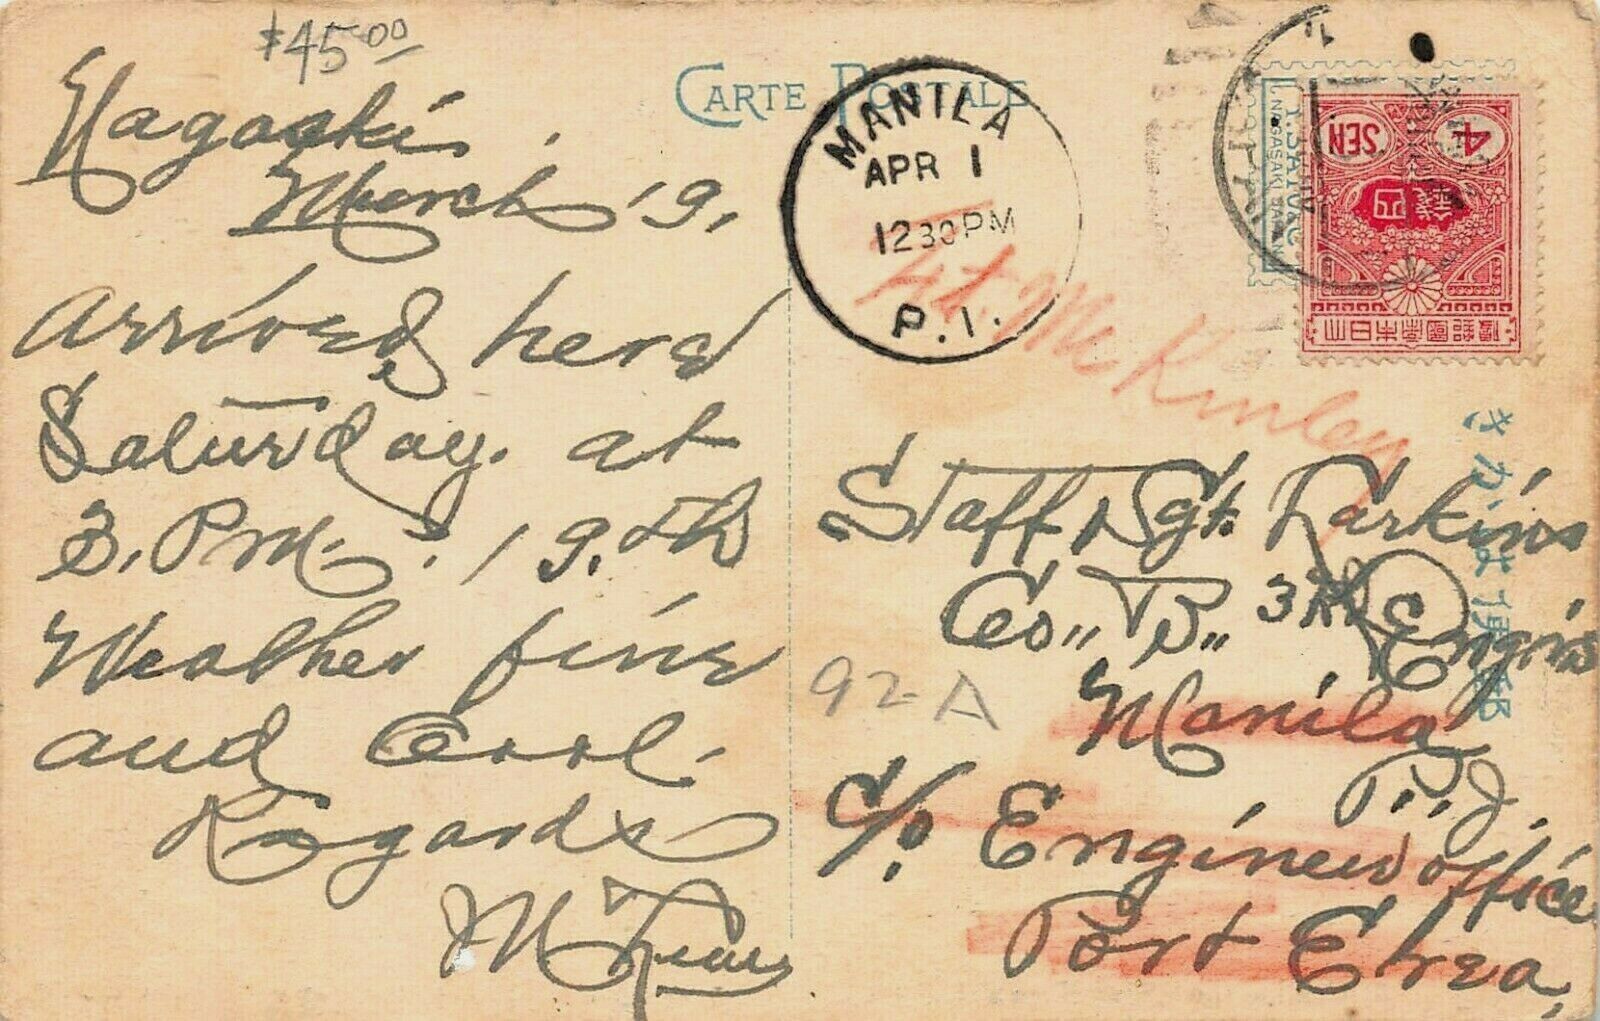 $45.00
Nagasaki.
March 19,
arrived here
Saturday. at
3. P.M. 19.th
Weather fine
and Cool.
Regards
CARTE POSTALE
MANILA
APR 1
1230 PM
P.I.
4 SEN
四 錢
大日本帝國郵便
NAGASAKI JAPAN
Ft. McKinley
きかは便郵
Staff Sgt. Larkins
Co. "B" 3rd Engrs
92-A
Manila
P.I.
c/o Engineer office
Port Ebrea,